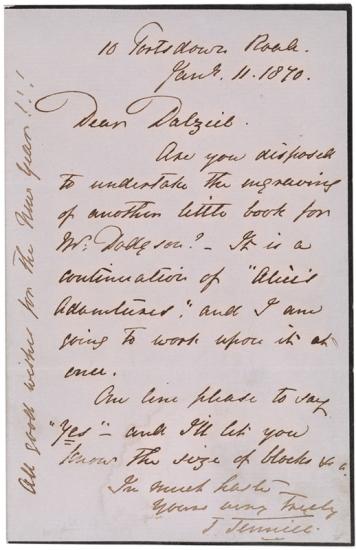 10 Portsdown Road.
Jany. 11. 1870.
Dear Dalziel.
Are you disposed
to undertake the engraving
of another little book for
Mr. Dodgson? – It is a
continuation of "Alice's
Adventures", and I am
going to work upon it at
once.
One line please to say
"Yes" – and I'll let you
know the size of blocks &c.
In much haste
Yours very Truly
J Tenniel.
All good wishes for the New Year!!!